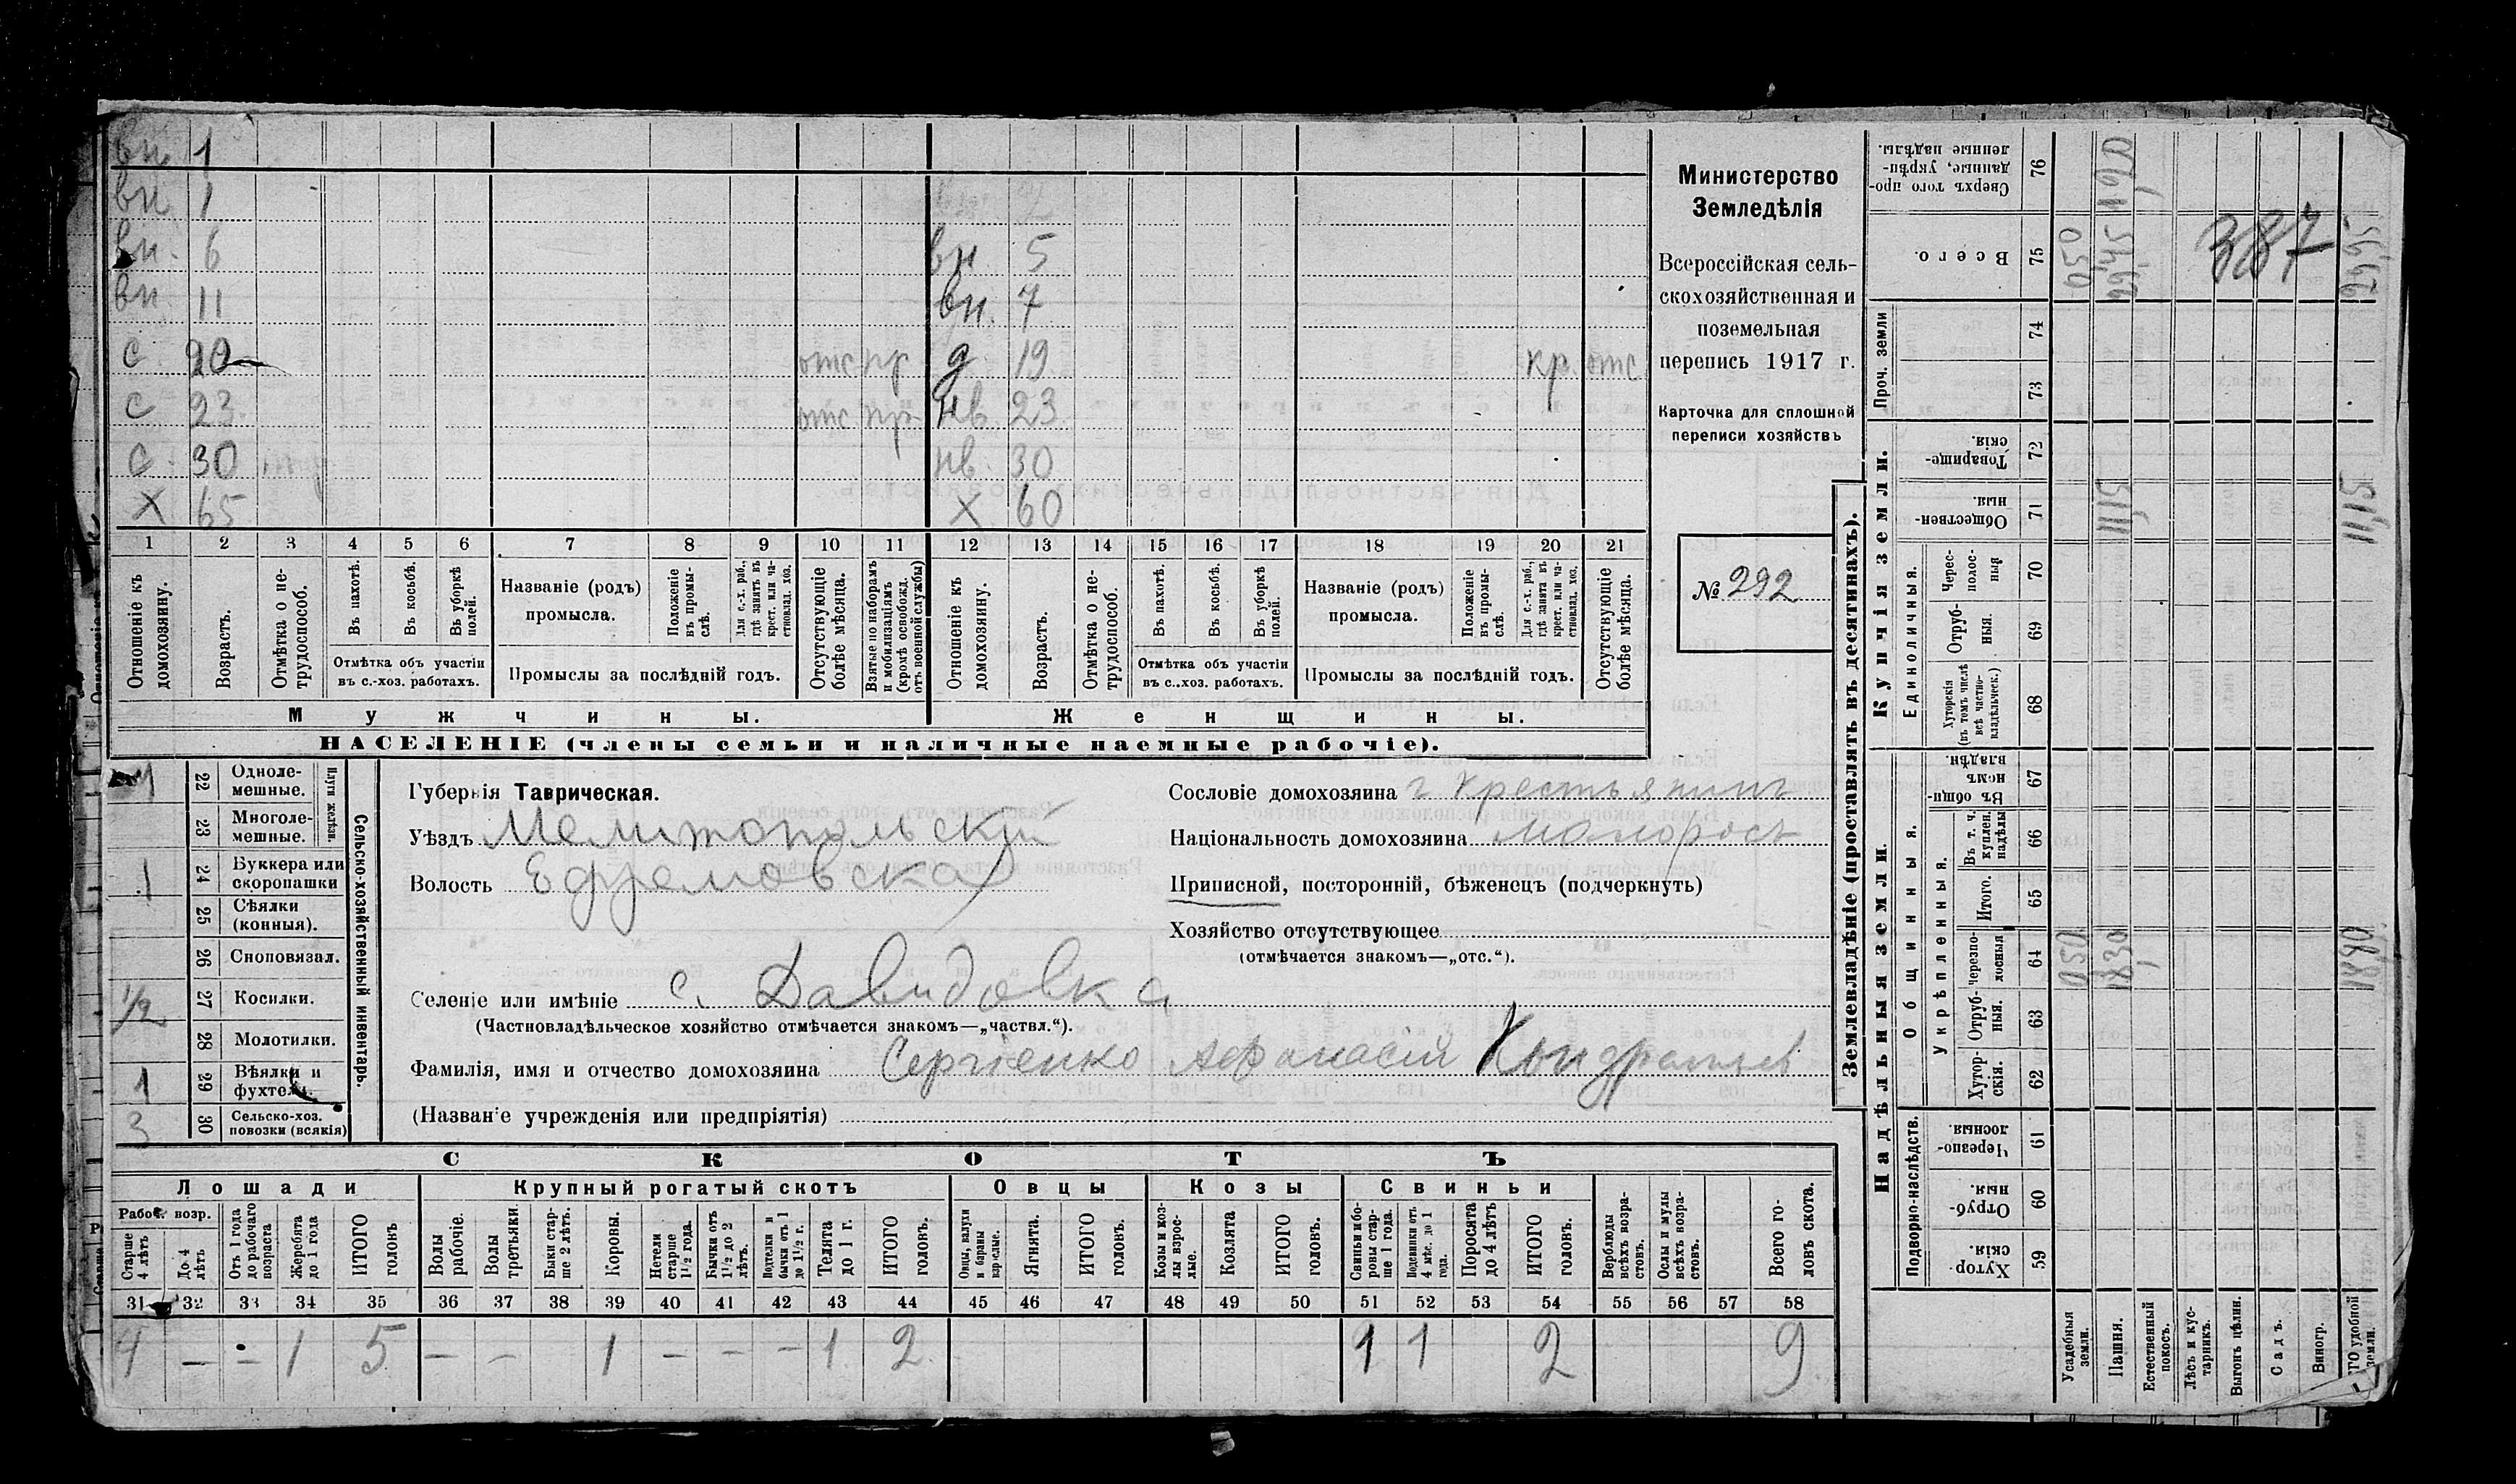 вн. 1
вн. 1
вн. 6 вн. 5
вн. 11 вн. 7
с 20 отс. пр. д 19 кр. отс.
с 23 отс. пр. нв. 23
с 30 нв. 30
х 65 х 60
1 2 3 4 5 6 7 8 9 10 11 12 13 14 15 16 17 18 19 20 21
Отношеніе къ домохозяину.
Возрастъ.
Отмѣтка о не-трудоспособ.
Въ пахотѣ.
Въ косьбѣ.
Въ уборкѣ полей.
Отмѣтка объ участіи
въ с.-хоз. работахъ.
Названіе (родъ)
промысла.
Положеніе въ промы-слѣ.
Для с.-х. раб., гдѣ занятъ въ крест. или ча-стновлад. хоз.
Промыслы за послѣдній годъ.
Отсутствующіе болѣе мѣсяца.
Взятые по наборамъ и мобилизаціямъ (кромѣ освобожд. отъ военной службы)
Отношеніе къ домохозяину.
Возрастъ.
Отмѣтка о не-трудоспособ.
Въ пахотѣ.
Въ косьбѣ.
Въ уборкѣ полей.
Отмѣтка объ участіи
въ с.-хоз. работахъ.
Названіе (родъ)
промысла.
Положеніе въ промы-слѣ.
Для с.-х. раб., гдѣ занятъ въ крест. или ча-стновлад. хоз.
Промыслы за послѣдній годъ.
Отсутствующіе болѣе мѣсяца.
Мужчины. Женщины.
НАСЕЛЕНІЕ (члены семьи и наличные наемные рабочіе).
Министерство
Земледѣлія
Всероссійская сель-
скохозяйственная и
поземельная
перепись 1917 г.
Карточка для сплошной
переписи хозяйствъ
№ 292
Сельско-хозяйственный инвентарь.
Плуги желѣзн.
1 22 Одноле-мешные.
23 Многоле-мешные.
1 24 Буккера или скоропашки
25 Сѣялки (конныя).
26 Сноповязал.
1/2 27 Косилки.
28 Молотилки.
1 29 Вѣялки и фухтели.
3 30 Сельско-хоз. повозки (всякія)
Губернія Таврическая.
Уѣздъ Мелитопольскій
Волость Ефремовская
Селеніе или имѣніе с. Давидовка
(Частновладѣльческое хозяйство отмѣчается знакомъ—„частвл.“).
Фамилія, имя и отчество домохозяина Сергіенко Афанасій Кондратьев
(Названіе учрежденія или предпріятія)
Сословіе домохозяина крестьянинъ
Національность домохозяина малоросъ
Приписной, посторонній, бѣженецъ (подчеркнуть)
Хозяйство отсутствующее
(отмѣчается знакомъ—„отс.“).
СКОТЪ
Лошади Крупный рогатый скотъ Овцы Козы Свиньи
Рабоч. возр.
Старше 4 лѣтъ
До 4 лѣтъ
Отъ 1 года до рабочаго возраста
Жеребята до 1 года
ИТОГО головъ
Волы рабочіе.
Волы третьяки.
Быки стар-ше 2 лѣтъ.
Коровы.
Нетели старше 1½ года.
Бычки отъ 1½ до 2 лѣтъ.
Подтелки и бычки отъ 1 до 1½ г.
Телята до 1 г.
ИТОГО головъ.
Овцы, валухи и бараны взрослые.
Ягнята.
ИТОГО головъ.
Козы и коз-лы взрос-лые.
Козлята
ИТОГО головъ.
Свиньи и бо-ровы стар-ше 1 года.
Подсвинки отъ 4 мѣс. до 1 года.
Поросята до 4 лѣтъ
ИТОГО головъ.
Верблюды всѣхъ возра-стовъ.
Ослы и мулы всѣхъ возра-стовъ.
Всего го-ловъ скота.
31 32 33 34 35 36 37 38 39 40 41 42 43 44 45 46 47 48 49 50 51 52 53 54 55 56 57 58
4 — — 1 5 — — 1 — — — 1 2 1 1 2 9
Землевладѣніе (проставлять въ десятинахъ).
Надѣльныя земли. Купчія земли.
Подворно-наслѣдств.
Общинныя.
Укрѣпленныя.
Единоличныя.
Проч. земли
Сверхъ того про-данные, укрѣп-ленные надѣлы. 76
Всего. 75 050 387
74
73
Товарище-скія. 72
Обществен-ныя. 71
Черес-полос-ныя 70
Отруб-ныя. 69
Хуторскія (въ томъ числѣ всѣ частно-владѣльческ.) 68
Въ общи-номъ владѣн. 67
Въ т. ч. куплен. надѣлы 66
Итого. 65
Черезпо-лосныя 64 050 1830
Отруб-ныя. 63
Хутор-скія. 62
Черезпо-лосныя. 61
Отруб-ныя. 60
Хутор-скія. 59
Усадебныя земли.
Пашня.
Естественный покосъ.
Лѣсъ и кус-тарникъ.
Выгонъ цѣлин.
Садъ.
Виногр.
ГО удобной земли.